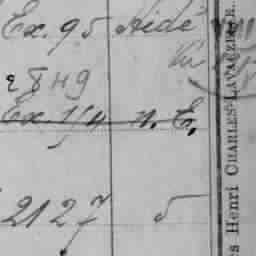 Ex. 95 Aidé
2849
Ex 1/4 n. E.
2127 5
es Henri CHARLES-LAVAUZELLE.